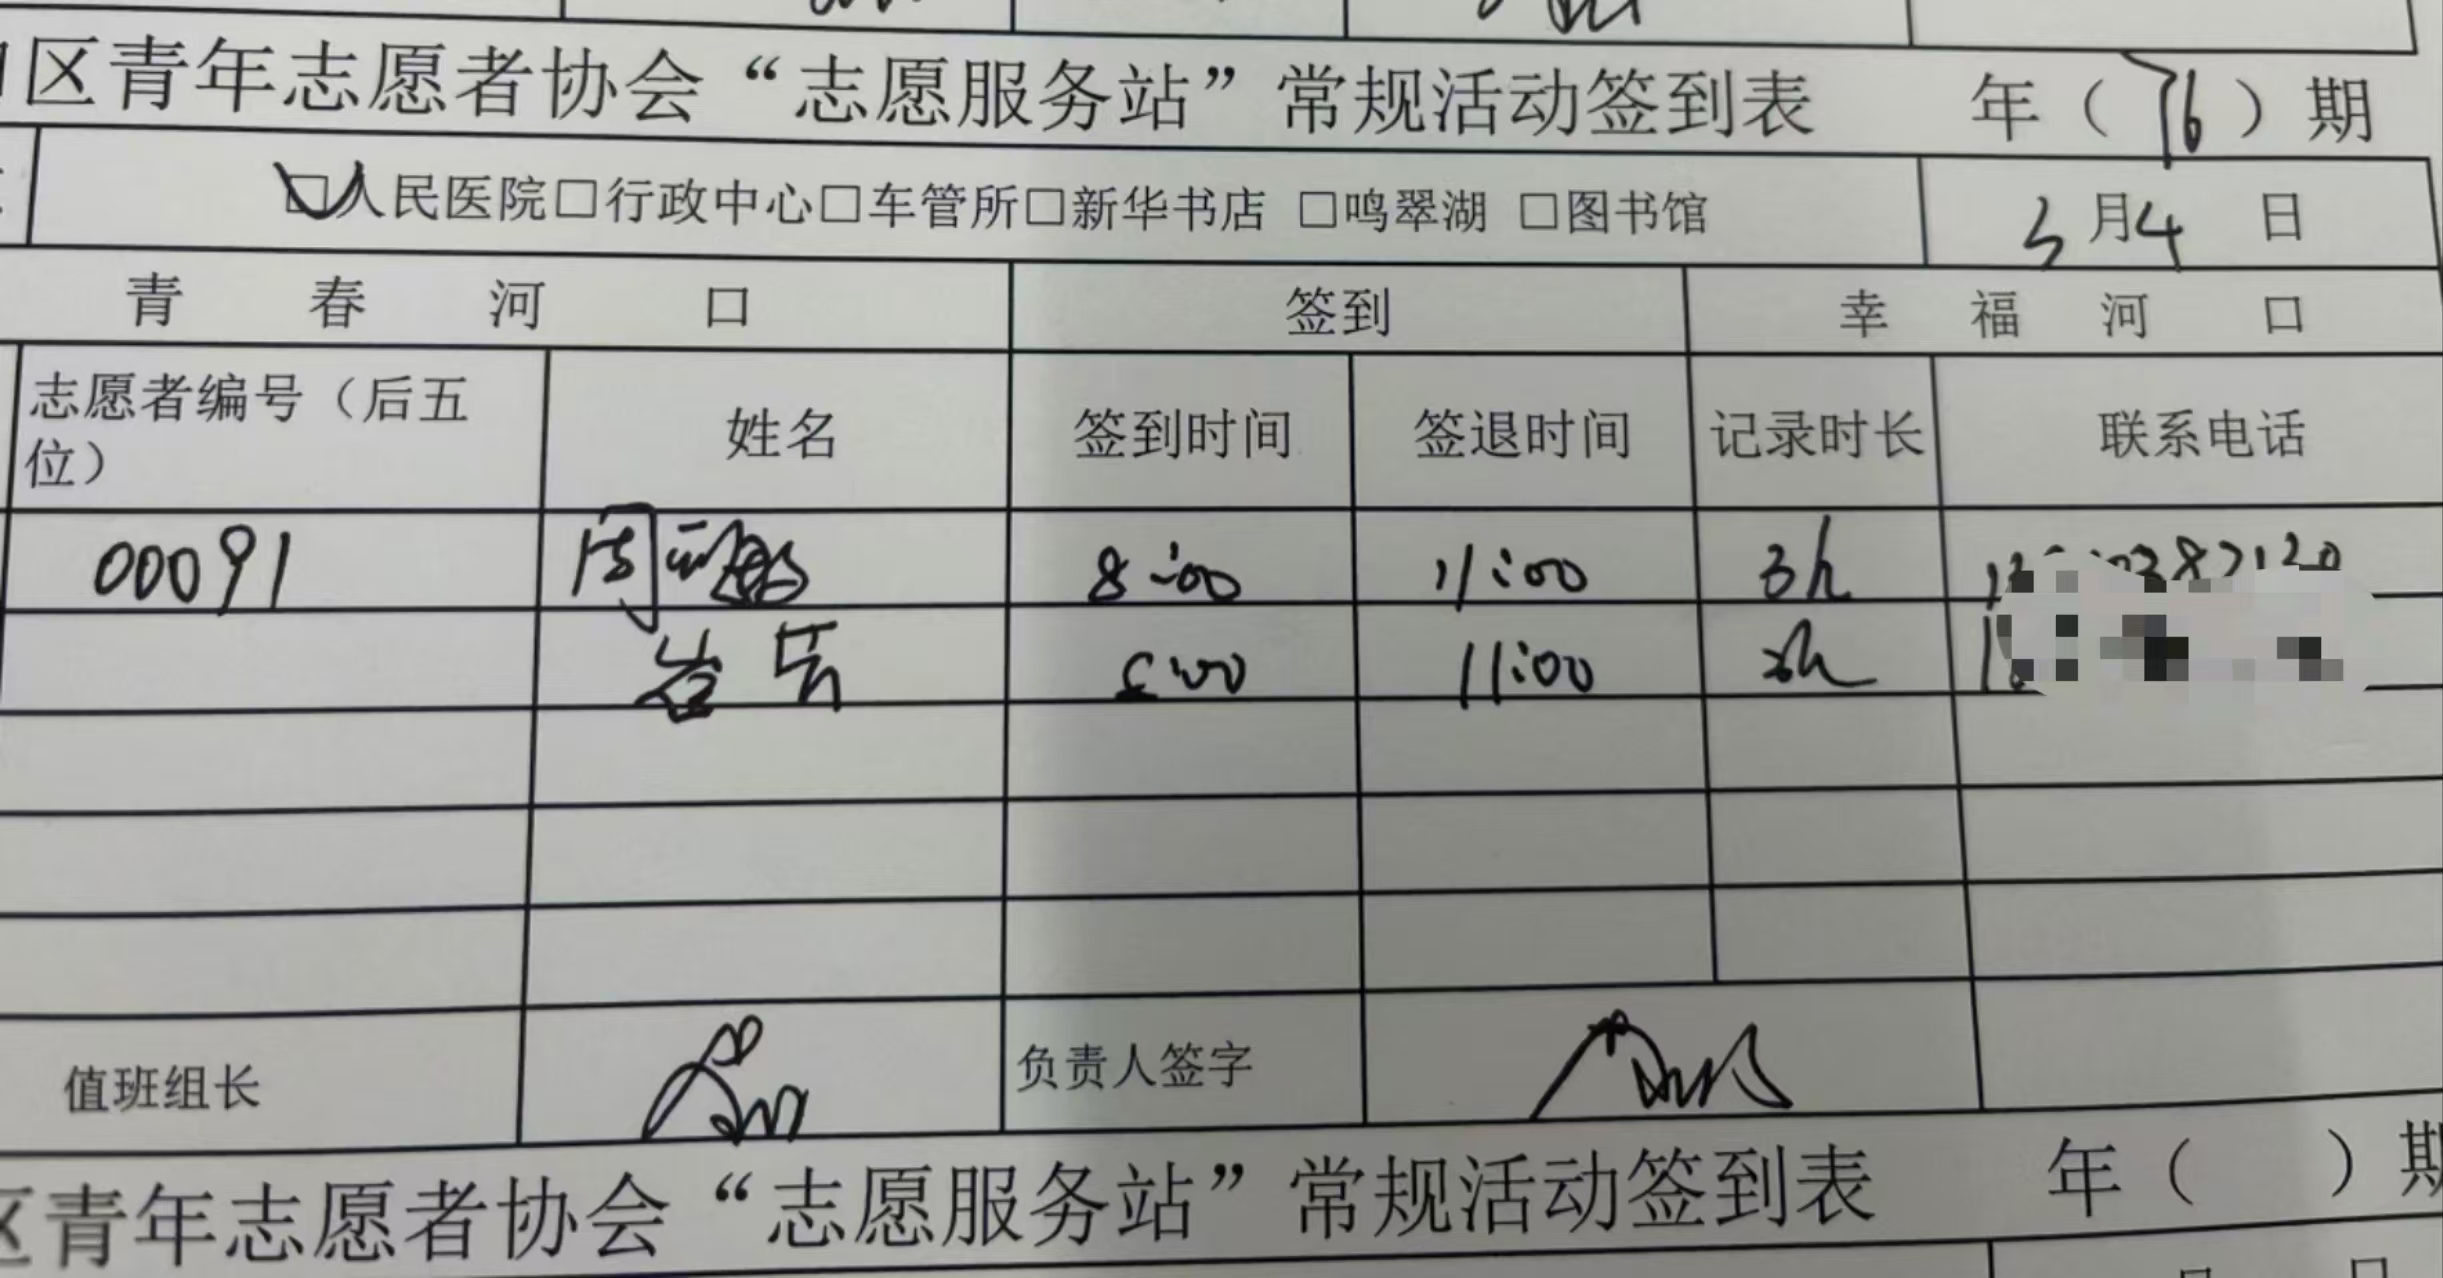 区青年志愿者协会“志愿服务站”常规活动签到表 年（76）期
□人民医院□行政中心□车管所□新华书店 □鸣翠湖 □图书馆 3月4日
青春河口 签到 幸福河口
志愿者编号（后五位） 姓名 签到时间 签退时间 记录时长 联系电话
00091 周 8:00 11:00 3h
11:00 3h
值班组长 负责人签字
区青年志愿者协会“志愿服务站”常规活动签到表 年（ ）期
月 日